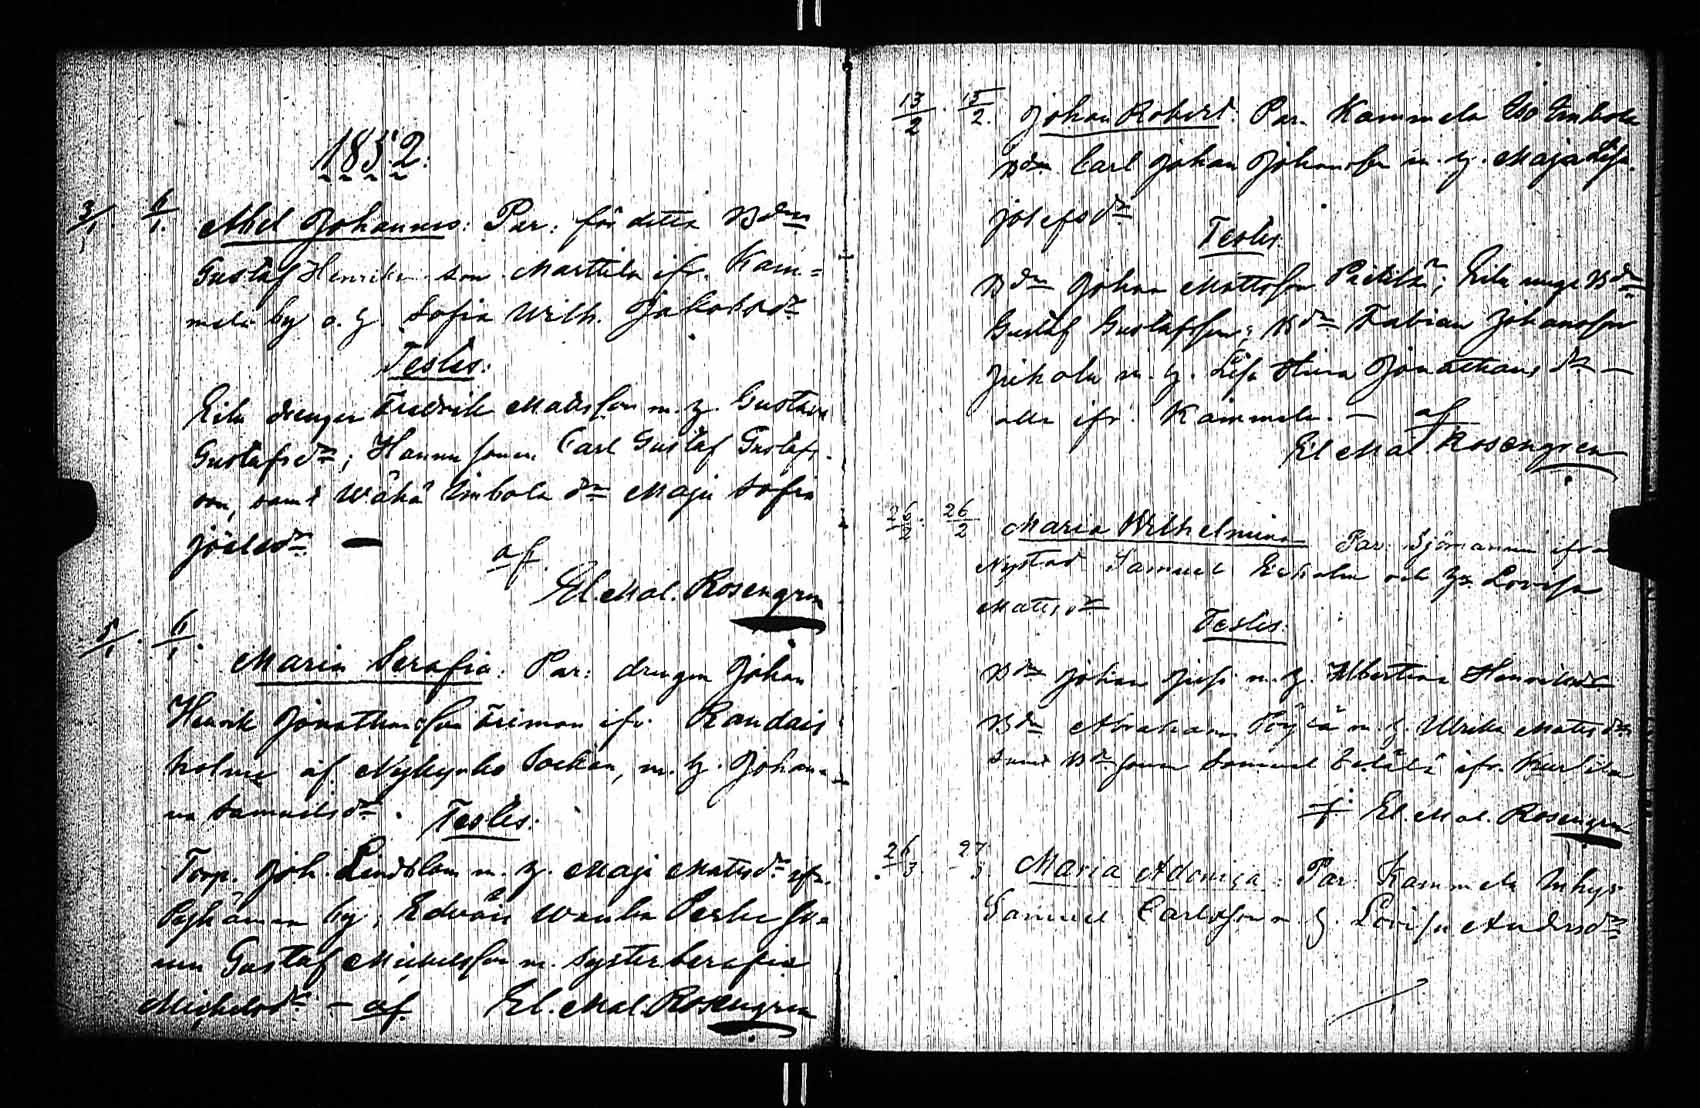 1852.
3/1. 6/1. Abel Johannes: Par: för detta Bdn
Gustaf Henriksson Marttila ifr. Kam=
mela by o. h. Sofia Wilh. Jakobsdr
Testes:
Eila drengen Fredrik Matsson m. h. Gustava
Gustafsdr; Hannu sonen Carl Gustaf Gustafs-
son, samt Wähä Imbola dr Maja Sofia
Joelsdr —
af
El. Mal. Rosengren
5/1. 6/1. Maria Serafia: Par: drengen Johan
Henrik Jonathansson Friman ifr. Randais
holme af Nykyrko Socken, m. h. Johan-
na Samuelsdr. Testes:
Torp. Joh. Lindblom m. h. Maja Matsdr ifr.
by; Edvais Perho so-
nen Gustaf Michelsson m. syster Serafia
Michelsdr — af El. Mal. Rosengren
13/2. 15/2. Johan Robert. Par. Kammela Iso Imbola
Bdn Carl Johan Johansson m. h. Maja Lisa
Josefsdr
Testes:
Bdn Johan Mattsson Eila unge Bdn
Gustaf Gustafsson; Bdn Fabian Johansson
m. h. Lisa Stina Jonathansdr —
alla ifr. Kammela. — af
El Mal Rosengren
26/2. 26/2 Maria Wilhelmina Par: Sjömannen ifrån
Nystad Samuel Ekholm och h. Lovisa
Matsdr
Testes:
Bdn Johan m. h. Albertina Henriksdr
Bdn Abraham m. h. Ulrika Matsdr
samt Bdn sonen Samuel ifr.
af: El. Mal. Rosengren
26/3. 27/3 Maria Adonga: Par: Kammela Inhys
Samuel Carlsson m. h. Lovisa Andersdr